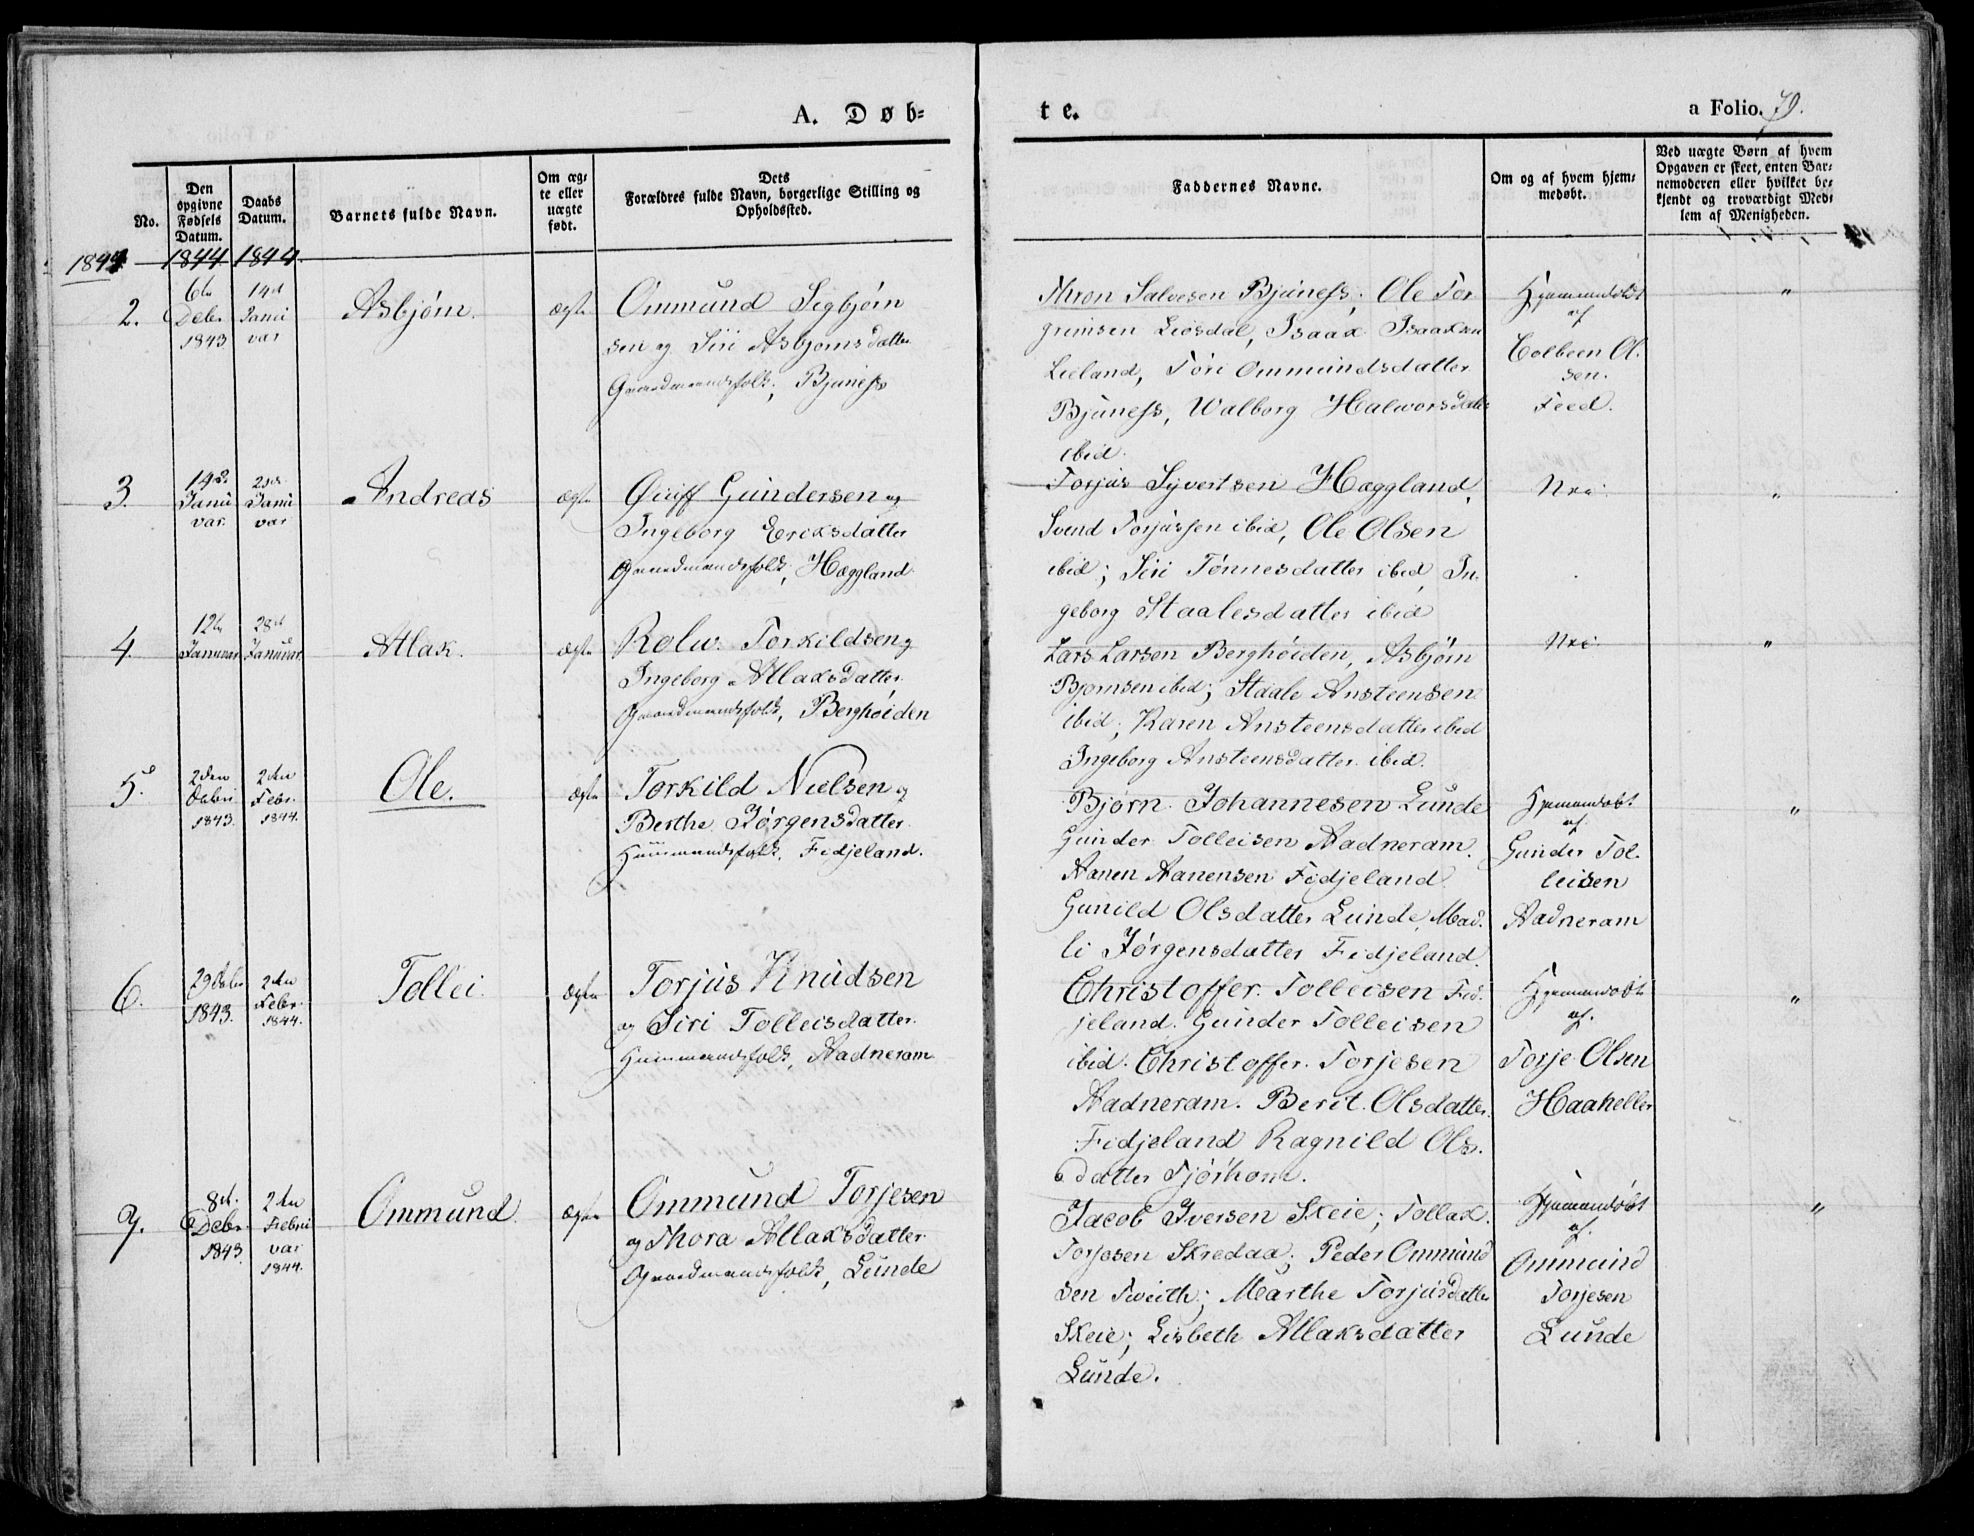 A. Døb=
te.
a Folio. 79.
No.
Den opgivne Fødsels Datum.
Daabs Datum.
Barnets fulde Navn.
Om ægte eller uægte født.
Dets Forældres fulde Navn, borgerlige Stilling og Opholdssted.
Faddernes Navne.
Om og af hvem hjemmedøbt.
Ved uægte Børn af hvem Opgaven er skeet, enten Barnemoderen eller hvilket bekjendt og troværdigt Medlem af Menigheden.
1844 1844 1844
2.
6te
Debr.
1843
14de
Janu
var
Asbjørn.
ægte
Ommund Sigbjørn
sen og Siri Asbjørnsdatter
Gaardmandsfolk, Bjuness
Thron Salvesen Bjuness; Ole Tor
grimsen Liosdal, Isaax Isaaxsen
Lieland, Tori Ommundsdatter
Bjuness, Walborg Halworsdatter
ibid.
Hjemmedøbt
af
Colbeen Ol.
sen.
Feed.
"
3.
14de
Janu
var.
21de
Janu
var
Andreas
ægte
Gundersen og
Ingeborg Eriksdatter
Gaardmandsfolk, Hæggland
Torjus Syvertsen Hæggland,
Svend Torjussen ibid, Ole Olsen
ibid; Siri Tønnesdatter ibid, In
geborg Staalesdatter ibid
Nei.
"
4.
12te
Januar
28de
Januar.
Atlak.
ægte
Rolw. Torkildsen og
Ingeborg Atlaksdatter
Gaardmandsfolk, Berghøiden
Lars Larsen Berghøiden, Asbjørn
Bjørnsen ibid; Staale Ansteensen
ibid; Karen Ansteensdatter ibid
Ingeborg Ansteensdatter ibid.
Nei.
"
5.
2den
Octbri
1843.
2den
Febr.
1844.
Ole.
ægte
Torkild Nielsen og
Berthe Jørgensdatter
Huusmandsfolk, Fidjeland.
Bjørn Johannesen Lunde
Gunder Tolleisen Aadneram.
Aanen Aanensen Fidjeland
Gunild Olsdatter Lunde, Mad.
li Jørgensdatter Fidjeland
Hjemmedøbt
af
Gunder Tol.
leisen
Aadneram
"
6.
29
1843.
2den
Febr.
1844.
Tollei
ægte
Torjus Knudsen
og Siri Tolleisdatter
Huusmandsfolk, Aadneram
Christoffer Tolleisen Fid.
jeland. Gunder Tolleisen
ibid. Christoffer Torjesen
Aadneram. Berit Olsdatter
Fidjeland Ragnild Ols.
datter Tjørhom.
Hjemmedøbt
af.
Torje Olsen
Haaheller
"
7.
8de.
Debr.
1843
2den
Febru
var
1844.
Ommund
ægte
Ommund Torjesen
og Thora Atlaksdatter
Gaardmandsfolk, Lunde
Jacob Iversen Skeie; Tollax.
Torjesen Skredaa; Peder Ommund
sen Tweith; Marthe Torjusdatter
Skeie; Lisbeth Atlaksdatter
Lunde.
Hjemmedøbt
af.
Ommund
Torjesen
Lunde
"